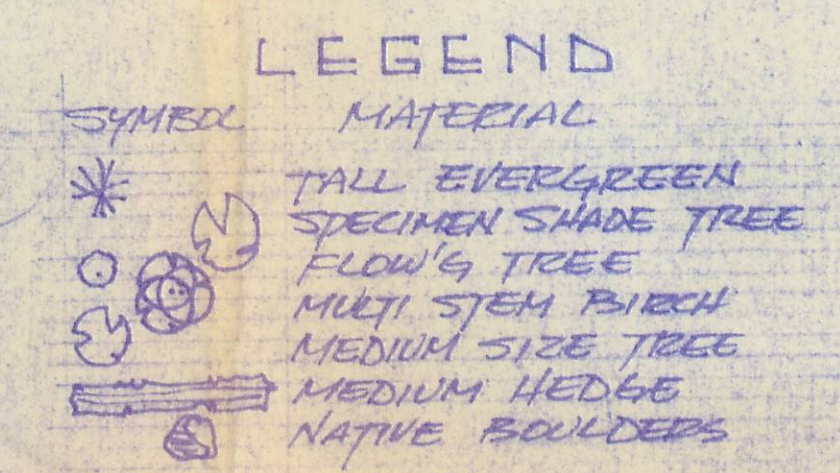 LEGEND
SYMBOL MATERIAL
TALL EVERGREEN
SPECIMEN SHADE TREE
FLOW'G TREE
MULTI STEM BIRCH
MEDIUM SIZE TREE
MEDIUM HEDGE
NATIVE BOULDERS